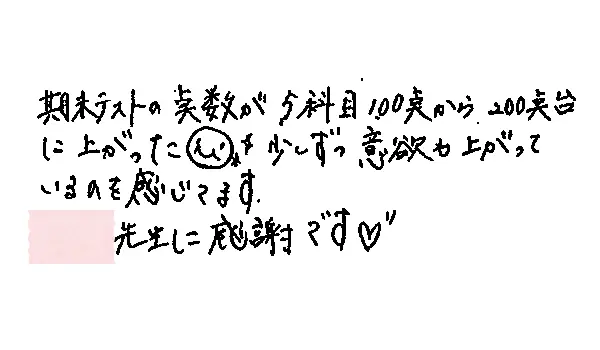 期末テストの点数が 5科目 100点から 200点台
に上がった 少しずつ意欲も上がって
いるのを感じてます。
先生に感謝です♡